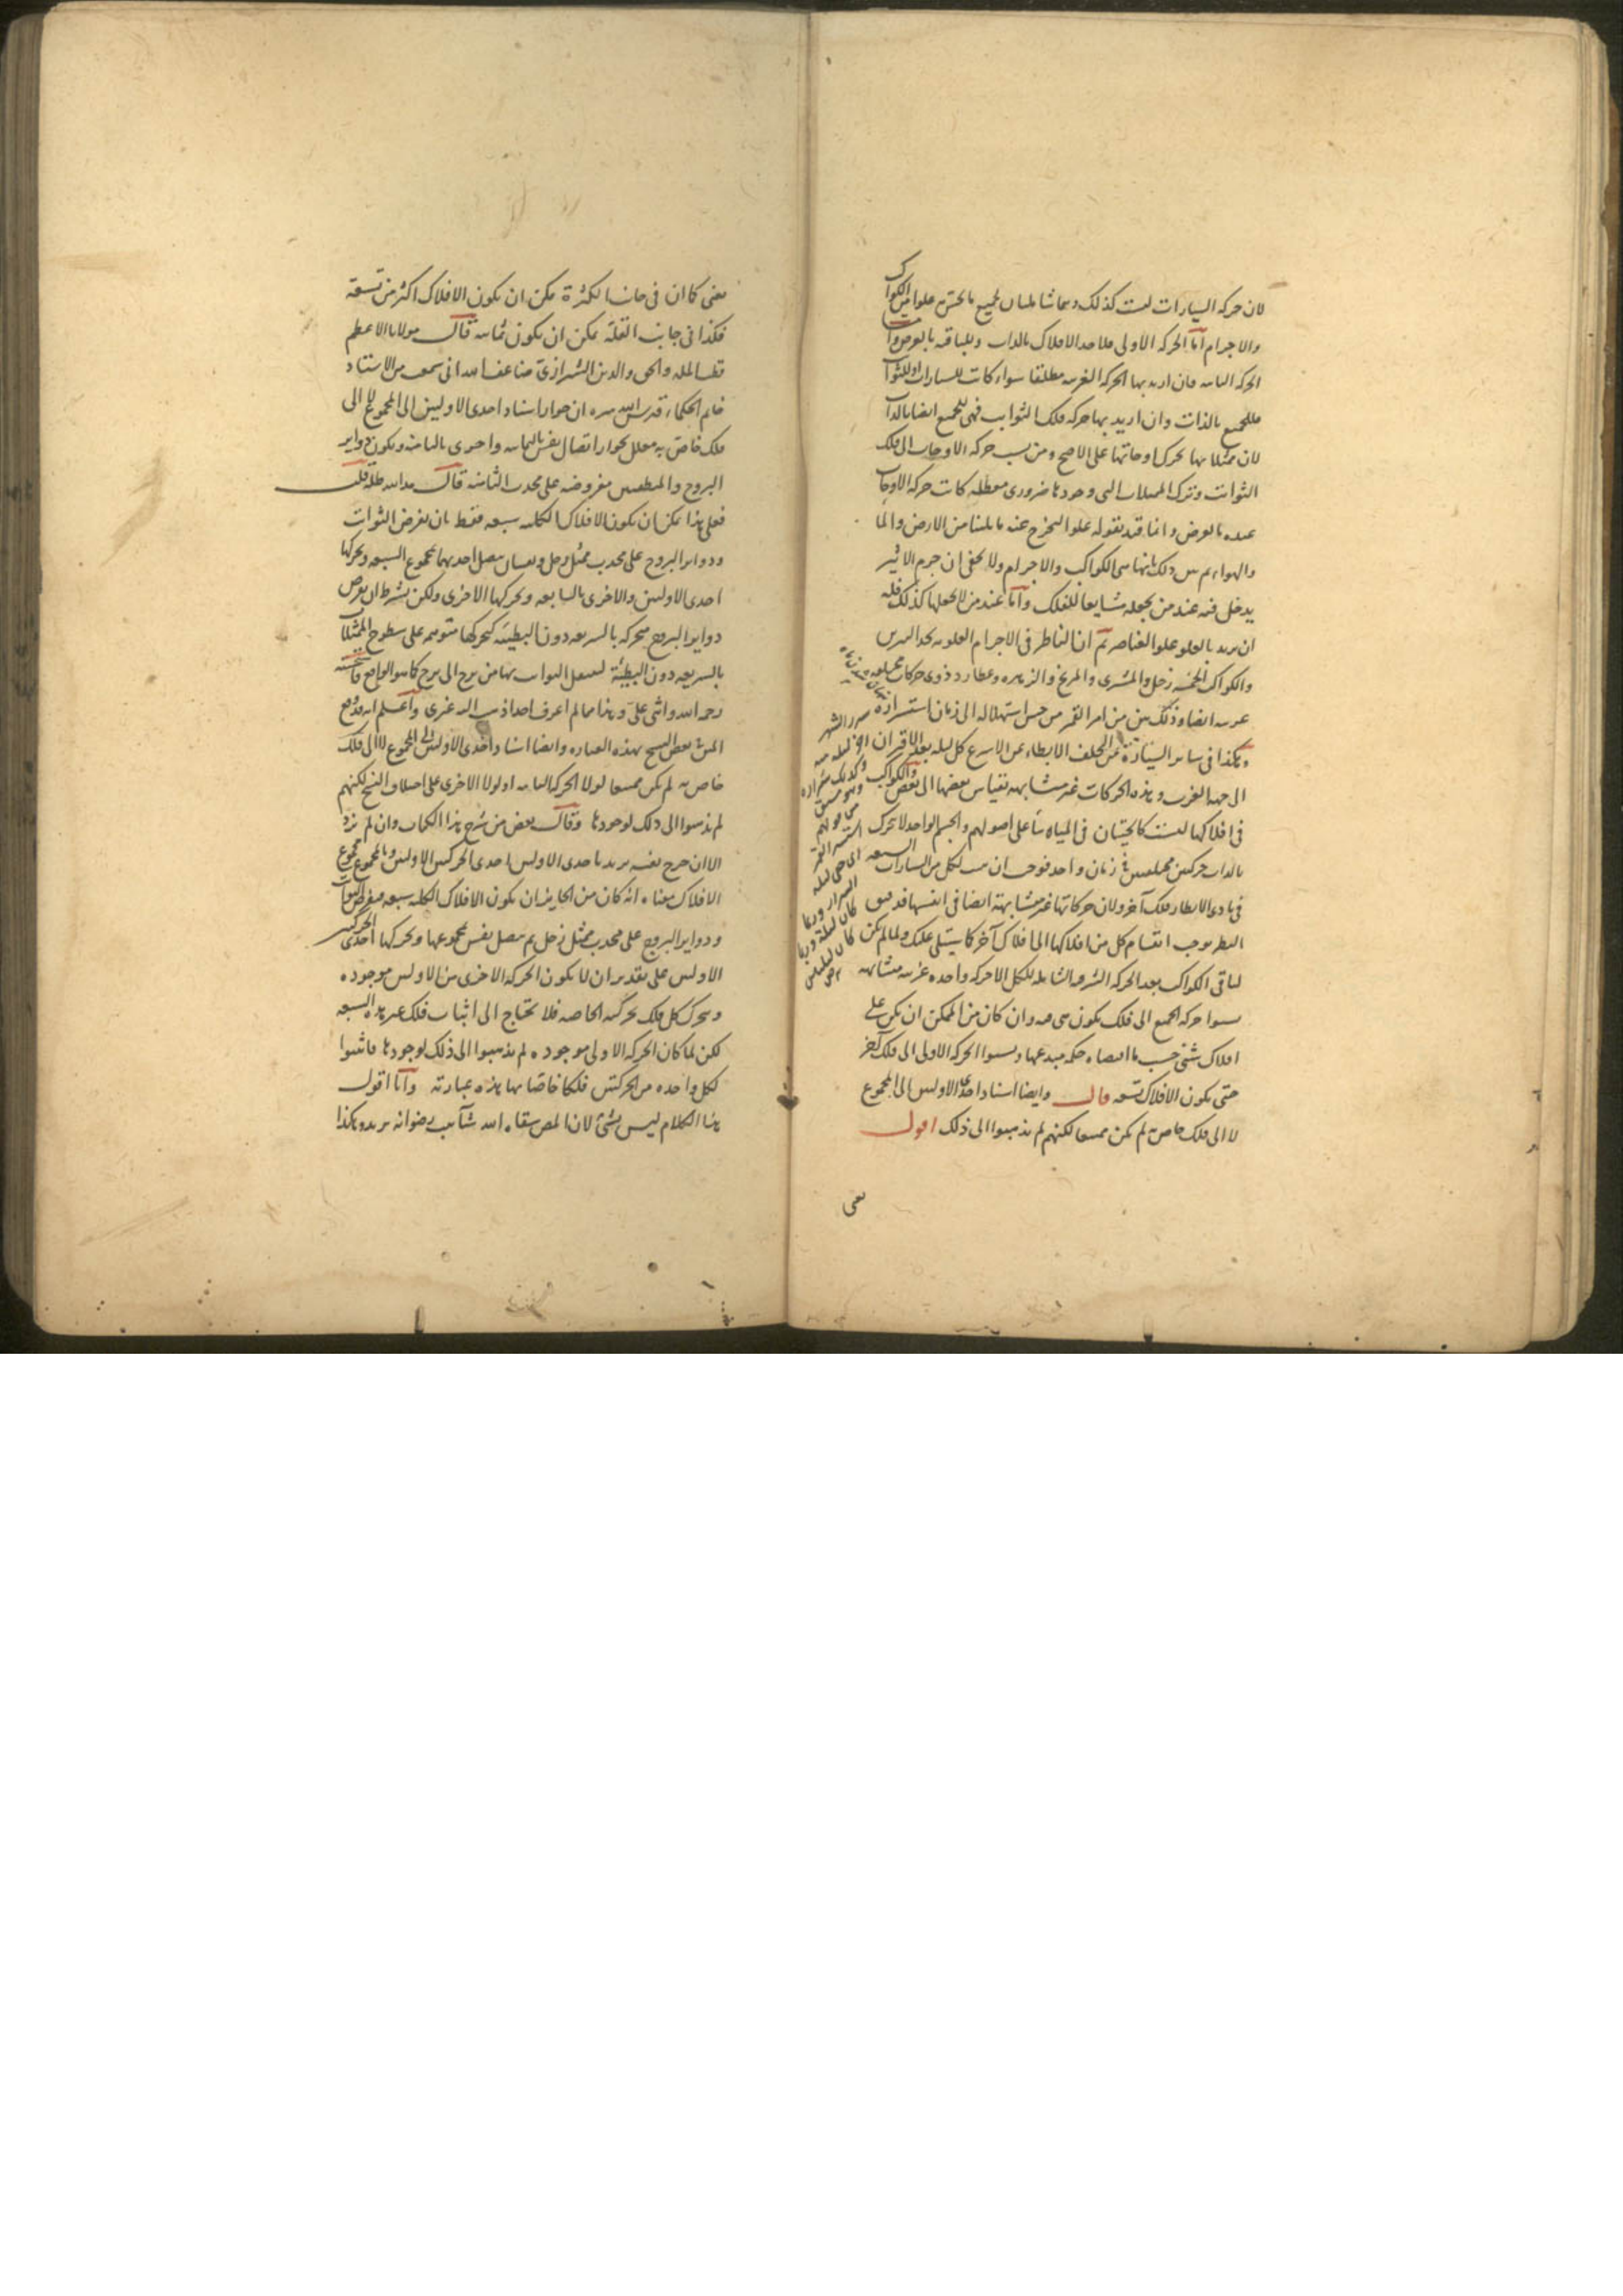 لان حركة السيارات ليست كذلك وهما شاملتان لجميع ما يحس به علوا من الكواكب
والاجرام اما الحركة الاولى فلاحد الافلاك بالذات ولباقيه بالعرض واما
الحركة الثانيه فان اريد بها الحركة الغربيه مطلقا سواء كانت للسيارات او للثوابت
فللجميع بالذات وان اريد بها حركة فلك الثوابت فهى للجميع ايضا بالذات
لان ممثلاتها تحرك اوجاتها على الاصح ومن نسب حركة الاوجات الى فلك
الثوابت وترك الممثلات التى وجودها ضرورى معطلة كانت حركة الاوجات
عنده بالعرض وانما قيد بقوله علوا ليخرج عنه ما يلينا من الارض والماء
والهواء ثم بين ذلك بانها هى الكواكب والاجرام ولا يخفى ان جرم الاثير
يدخل فيه عند من يجعله مشايعا للفلك واما عند من لا يجعلها كذلك فله
ان يريد بالعلو علو العناصر ثم ان الناظر فى الاجرام العلويه يجد النيرين
والكواكب الخمسه زحل والمشترى والمريخ والزهره وعطارد ذوى حركات مختلفه
غربيه ايضا وذلك بين من امر القمر من حين استهلاله الى زمان استسراره
وهكذا فى سائر السيارة
الى جهة الغرب وهذه الحركات غير متشابهه بقياس بعضها الى بعض والكواكب
فى افلاكها ليست كالحيتان فى المياه بناء على اصولهم والجسم الواحد لا يتحرك
بالذات حركتين مختلفتين فى زمان واحد فوجب ان يثبت لكل من السيارات السبعه
فى بادى الانظار فلك آخر ولان حركاتها غير متشابهة ايضا فى انفسها
النظر يوجب انقسام كل من افلاكها الى افلاك آخر كما سيتلى عليك ولما لم يكن
لباقى الكواكب بعد الحركة السريعه الشامله للكل الا حركة واحده غربيه متشابهه
نسبوا حركة الجميع الى فلك يكون هى فيه وان كان من الممكن ان يكون على
افلاك شتى حسب ما اقتضاه حكمة مبدعها ونسبوا الحركة الاولى الى فلك آخر
حتى يكون الافلاك تسعه قال وايضا اسناد احدى الاوليين الى المجموع
لا الى فلك خاص به لم يكن ممتنعا لكنهم لم يذهبوا الى ذلك اقول
يعنى
يعنى كما ان فى جانب الكثرة يمكن ان يكون الافلاك اكثر من تسعة
فكذا فى جانب القلة يمكن ان يكون ثمانيه قال مولانا الاعظم
قطب المله والحق والدين الشيرازى ضاعف الله انى سمعت من الاستاد
خاتم الحكماء قدس الله سره ان جواز اسناد احدى الاوليين الى المجموع لا الى
فلك خاص به معلل بجواز اتصال نفس بالثمانيه واخرى بالثامنه ويكون دواير
البروج والمنطقتين مفروضه على محدب الثامنه قال مد الله ظله قلت
فعلى هذا يمكن ان يكون الافلاك الكليه سبعه فقط بان يفرض الثوابت
ودواير البروج على محدب ممثل زحل ونفسان يتصل احديهما بمجموع السبعه وتحركها
احدى الاوليين والاخرى بالسابعه وتحركها الاخرى ولكن بشرط ان يفرض
دواير البروج متحركه بالسريعه دون البطيئة كتحركها متوهمه على سطوح الممثلات
بالسريعه دون البطيئة لينتقل الثوابت بها من برج الى برج كما هو الواقع فاستحسنه
رحمه الله واثنى على وهذا مما لم اعرف احدا ذهب اليه غيرى واعلم انه وقع
المتن بعض النسخ بهذه العباره وايضا اسناد احدى الاوليين الى المجموع لا الى فلك
خاص به لم يكن ممتنعا لولا الحركة الثانيه او لولا الاخرى على اختلاف النسخ لكنهم
لم يذهبوا الى ذلك لوجودها وقال بعض من شرح هذا الكتاب وان لم يزد
الا ان جرح نفسه يريد باحدى الاوليين احدى الحركتين الاوليين وبالمجموع مجموع
الافلاك معناه انه كان من الجايز ان يكون الافلاك الكليه سبعه ويفرض الثوابت
ودواير البروج على محدب ممثل زحل ثم يتصل نفس بمجموعها وتحركها احدى الحركتين
الاوليين على تقدير ان لا يكون الحركة الاخرى من الاوليين موجوده
ويتحرك كل فلك بحركته الخاصه فلا يحتاج الى اثبات فلك غير هذه السبعه
لكن لما كان الحركة الاولى موجوده لم يذهبوا الى ذلك لوجودها فاثبتوا
لكل واحده من الحركتين فلكا خاصا بها هذه عبارته وانا اقول
هذا الكلام ليس بشئ لان المص سقاه الله شآبيب رضوانه يريد وهكذا